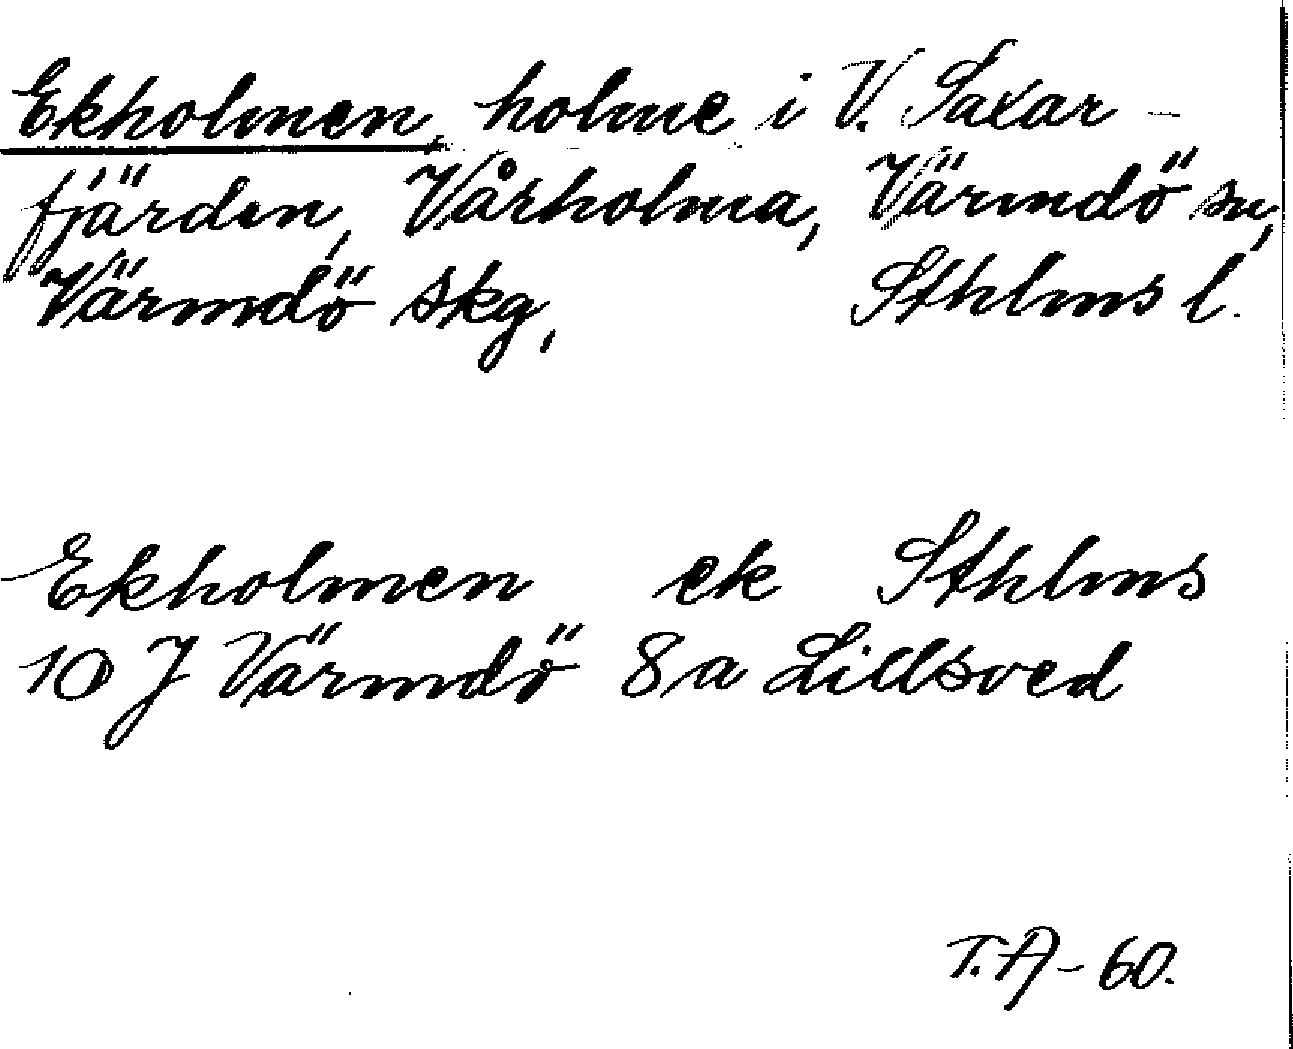 Ekholmen, holme i V. Saxar-
fjärden, Vårholma, Värmdö sn,
Värmdö skg, Sthlms l.
Ekholmen ek Sthlms
10 J Värmdö 8a Lillsved
T.A-60.